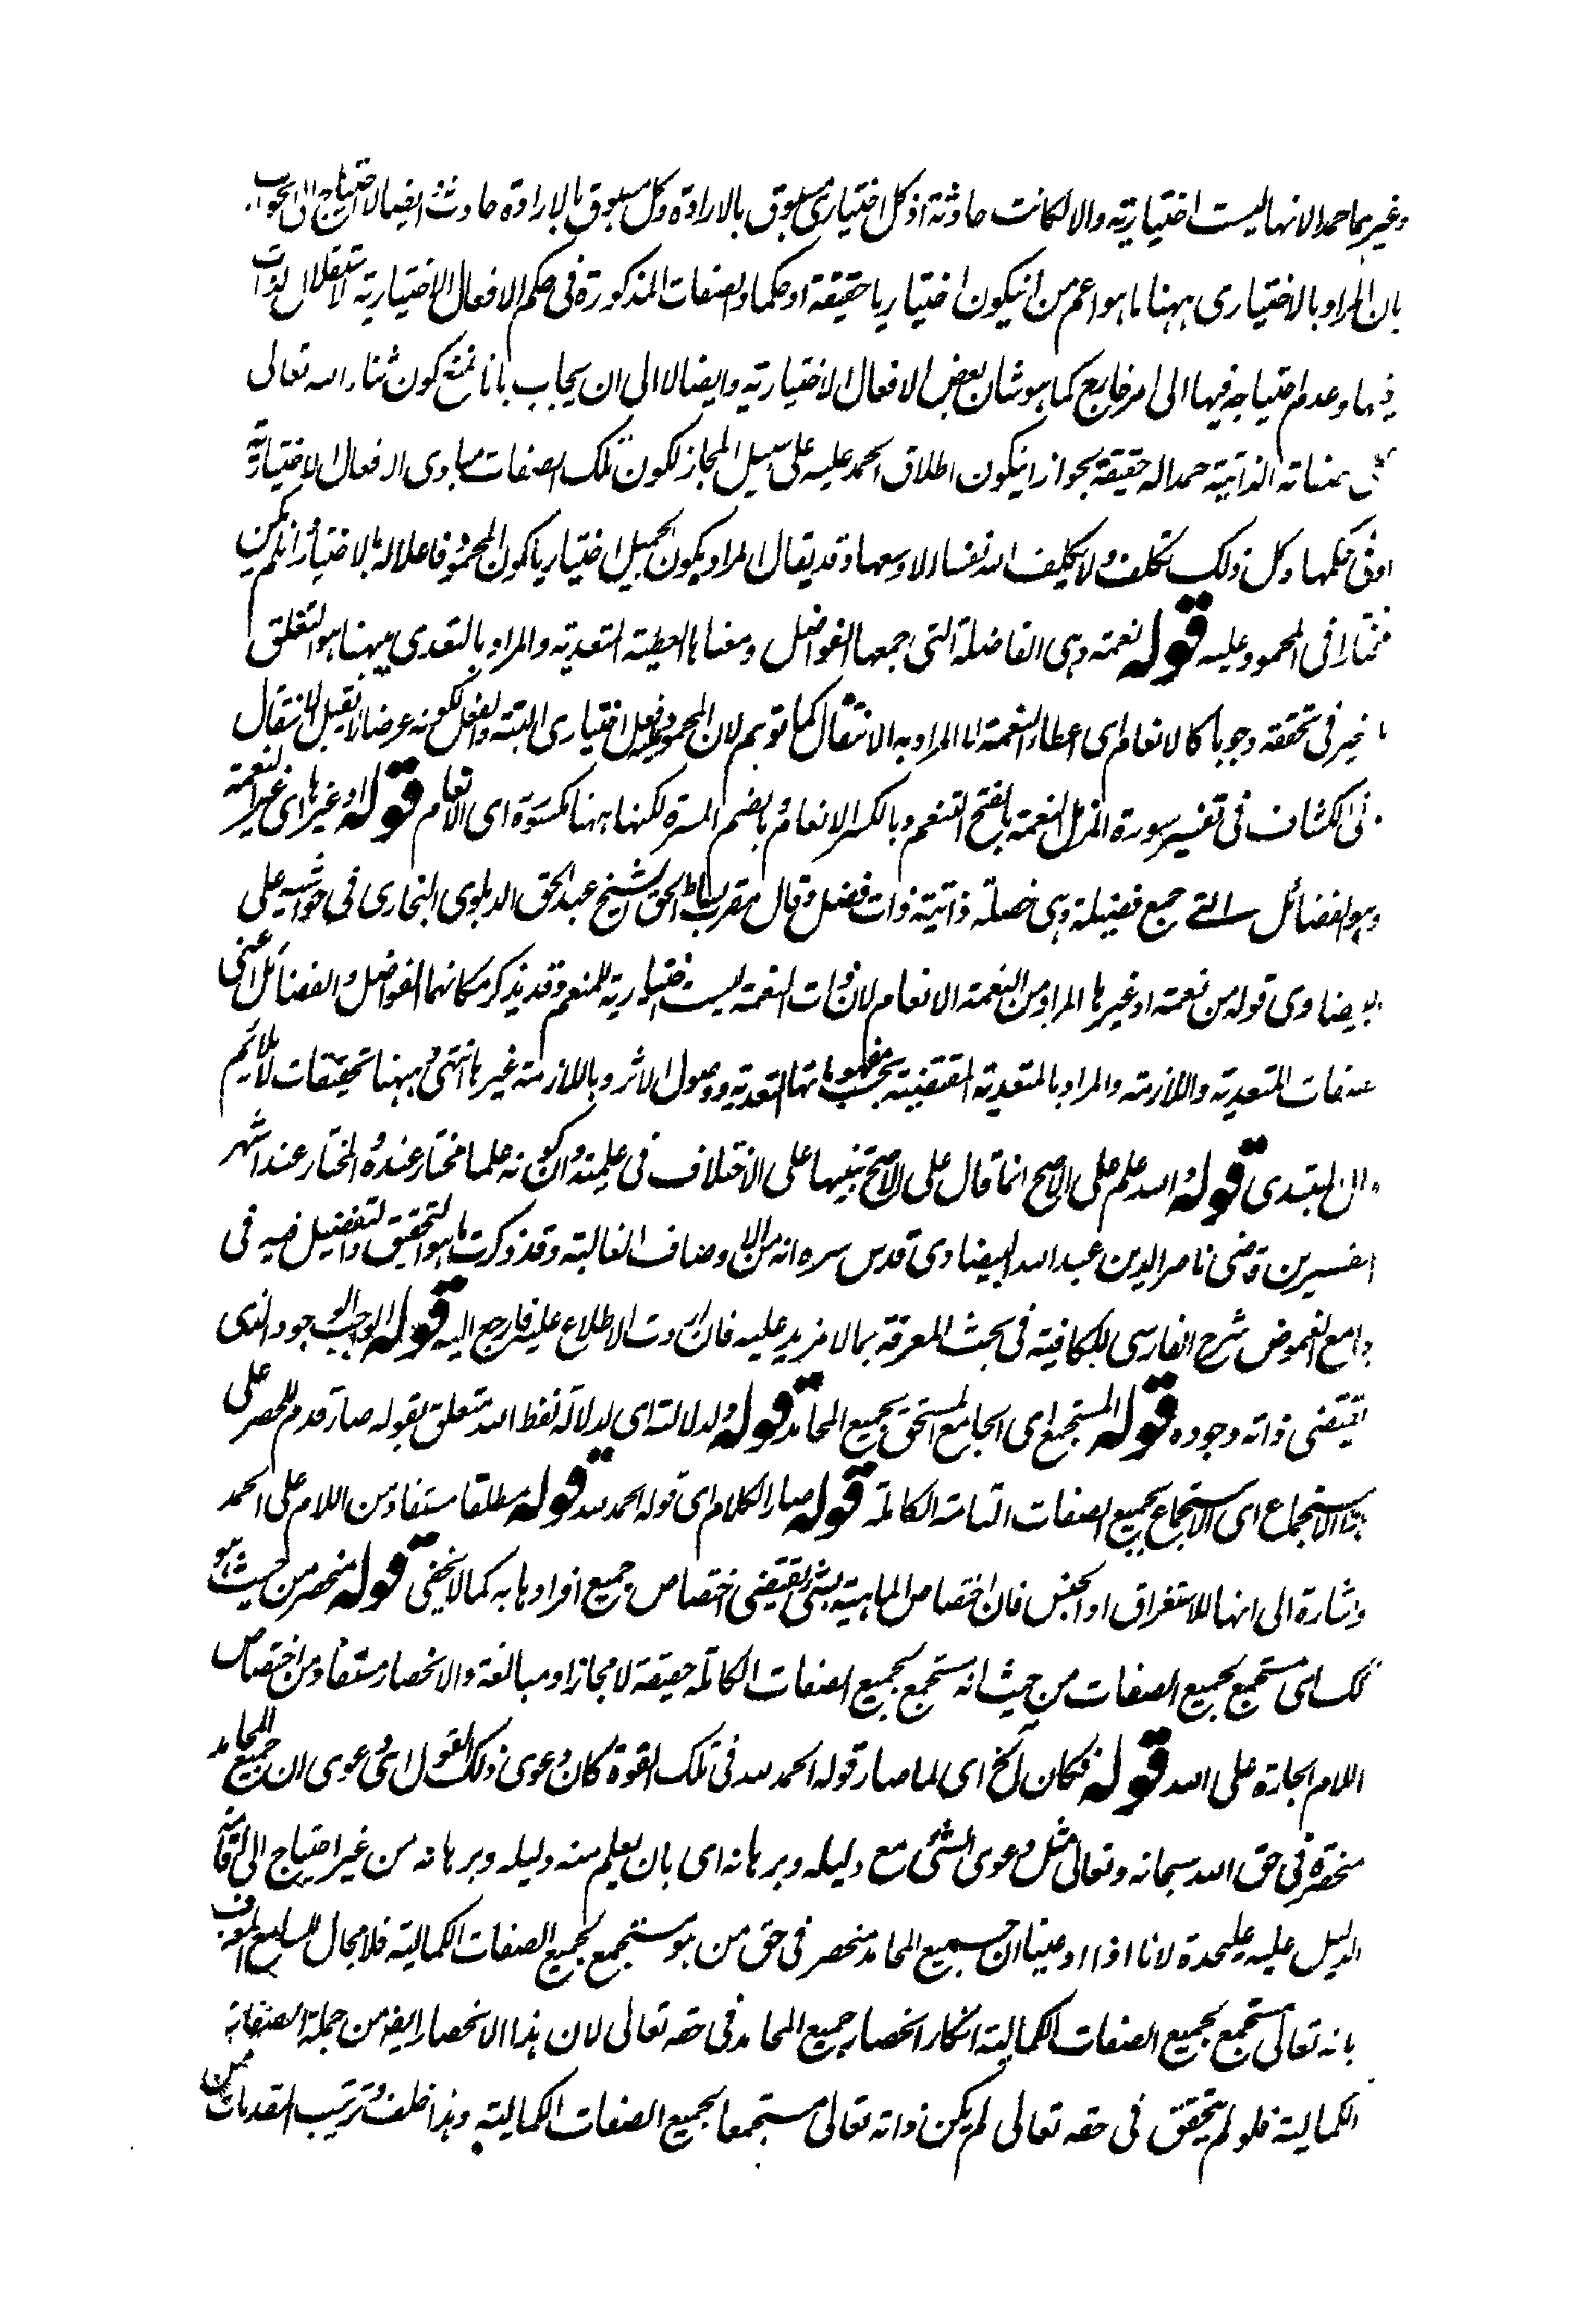 وغيرهما حمدا لانها ليست اختيارية والا لكانت حادثة اذ كل اختياري مسبوق بالارادة وكل مسبوق بالارادة حادث وايضا لا احتياج الى الجواب
بان المراد بالاختياري ههنا ما هو اعم من ان يكون اختياريا حقيقة او حكما والصفات المذكورة في حكم الافعال الاختيارية لاستقلال الذات
فيها وعدم احتياجه فيها الى امر خارج كما هو شان بعض الافعال الاختيارية وايضا لا الى ان يجاب بانا نمنع كون ثناء الله تعالى
على صفاته الذاتية حمدا له حقيقة لجواز ان يكون اطلاق الحمد عليه على سبيل المجاز لكون تلك الصفات مبادى الافعال الاختيارية
او في حكمها وكل ذلك تكلف ولا يكلف الله نفسا الا وسعها وقد يقال المراد بكون الجميل اختياريا كون المحمود فاعلا له بالاختيار وان لم يكن
مختارا في المحمود عليه قوله نعمة وهى الفاضلة التى جمعها الفواضل ومعناها العطية المتعدية والمراد بالتعدي ههنا هو التعلق
بالغير في تحققه وجوبا كالانعام اى اعطاء النعمة لا ما المراد به الانتقال كما توهم لان المحمود عليه فعل اختياري البتة والفعل لكونه عرضا لا يقبل الانتقال
في الكشاف في تفسير سورة المزمل النعمة بالفتح التنعم وبالكسر الانعام وبالضم المسرة لكنها ههنا مكسورة اى الانعام قوله او غيرها اى غير النعمة
وهو الفضائل التى جمع فضيلة وهى خصلة ذاتية ذات فضل وقال مقرب الحق الشيخ عبد الحق الدهلوى البخارى في حواشيه على
البيضاوى قوله من نعمة او غيرها المراد من النعمة الانعام لان ذات النعمة ليست اختيارية للمنعم وقد يذكر مكانهما الفواضل والفضائل اعنى
الصفات المتعدية واللازمة والمراد بالمتعدية المقتضية بحسب مفهوماتها التعدية ووصول الاثر وباللازمة غيرها انتهى وههنا تحقيقات لا يلائم
شان المبتدى قوله والله علم على الاصح انما قال على الاصح تنبيها على الاختلاف في علميته وان كونه علما مختار عنده والمختار عند اشهر
المفسرين قاضى ناصر الدين عبد الله البيضاوى قدس سره انه من الاوصاف الغالبة وقد ذكرت ما هو التحقيق والتفصيل فيه فى
جامع الغموض شرح الفارسى للكافية فى بحث المعرفة بما لا مزيد عليه فان اردت الاطلاع عليه فارجع اليه قوله الواجب الوجود الذى
يقتضى ذاته وجوده قوله المستجمع اى الجامع المستحق لجميع المحامد قوله ولدلالته اى لدلالة لفظ الله متعلق بقوله صار قدم للحصر على
هذا الاستجماع اى الاستجماع لجميع الصفات التامة الكاملة قوله صار الكلام اى قوله الحمد لله قوله مطلقا مستفاد من اللام على الحمد
واشارة الى انها للاستغراق او الجنس فان اختصاص الماهية بشئ يقتضى اختصاص جميع افرادها به كما لا يخفى قوله منحصر من حيث هو
كذلك اى مستجمع لجميع الصفات من حيث انه مستجمع لجميع الصفات الكاملة حقيقة لا مجازا ومبالغة والانحصار مستفاد من اختصاص
اللام الجارة على الله قوله فكان الخ اى لما صار قوله الحمد لله في تلك القوة كان دعوى ذلك القول اى دعوى ان جميع المحامد
منحصرة في حق الله سبحانه وتعالى مثل دعوى الشئ مع دليله وبرهانه اى بان يعلم منه دليله وبرهانه من غير احتياج الى اقامة
الدليل عليه عليحدة لانا اذا ادعينا ان جميع المحامد منحصر في حق من هو مستجمع لجميع الصفات الكمالية فلا مجال للسامع المعترف
بانه تعالى مستجمع لجميع الصفات الكمالية انكار انحصار جميع المحامد في حقه تعالى لان هذا الانحصار ايضا من جملة الصفات
الكمالية فلو لم يتحقق في حقه تعالى لم يكن ذاته تعالى مستجمعا لجميع الصفات الكمالية وهذا خلف وترتيب المقدمات